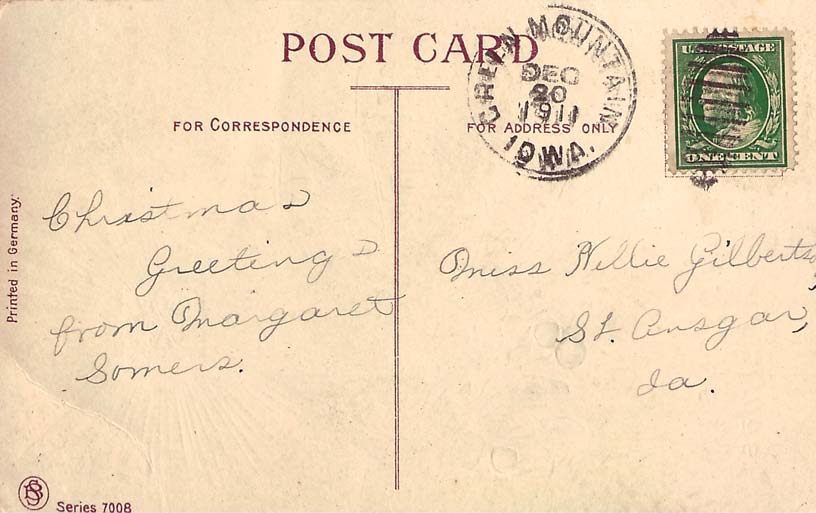 POST CARD
GREEN MOUNTAIN
DEC
20
1911
IOWA.
U.S. POSTAGE
ONE CENT
FOR CORRESPONDENCE
FOR ADDRESS ONLY
Printed in Germany.
Christmas
Greetings
from Margaret
Somers.
Miss Nellie Gilbertson
St. Ansgar,
Ia.
Series 7008